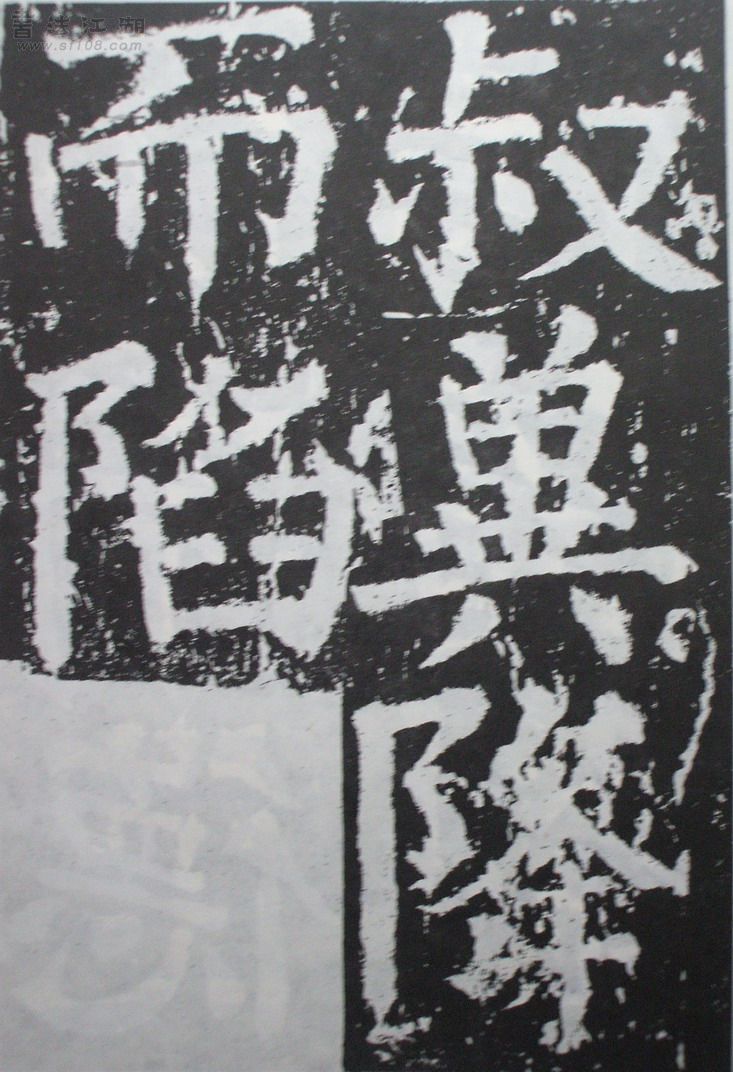 書法江湖
www.sf108.com
叔冀降
而陷